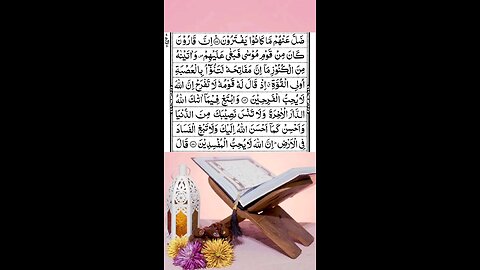 ضَلَّ عَنْهُمْ مَّا كَانُوْا يَفْتَرُوْنَ ۞ اِنَّ قَارُوْنَ
كَانَ مِنْ قَوْمِ مُوْسٰى فَبَغٰى عَلَيْهِمْ ۪ وَاٰتَيْنٰهُ
مِنَ الْكُنُوْزِ مَاۤ اِنَّ مَفَاتِحَهٗ لَتَنُوْٓاُ بِالْعُصْبَةِ
اُولِى الْقُوَّةِ ۗ اِذْ قَالَ لَهٗ قَوْمُهٗ لَا تَفْرَحْ اِنَّ اللّٰهَ
لَا يُحِبُّ الْفَرِحِيْنَ ۞ وَابْتَغِ فِيْمَاۤ اٰتٰىكَ اللّٰهُ
الدَّارَ الْاٰخِرَةَ وَلَا تَنْسَ نَصِيْبَكَ مِنَ الدُّنْيَا
وَاَحْسِنْ كَمَاۤ اَحْسَنَ اللّٰهُ اِلَيْكَ وَلَا تَبْغِ الْفَسَادَ
فِى الْاَرْضِ ۗ اِنَّ اللّٰهَ لَا يُحِبُّ الْمُفْسِدِيْنَ ۞ قَالَ